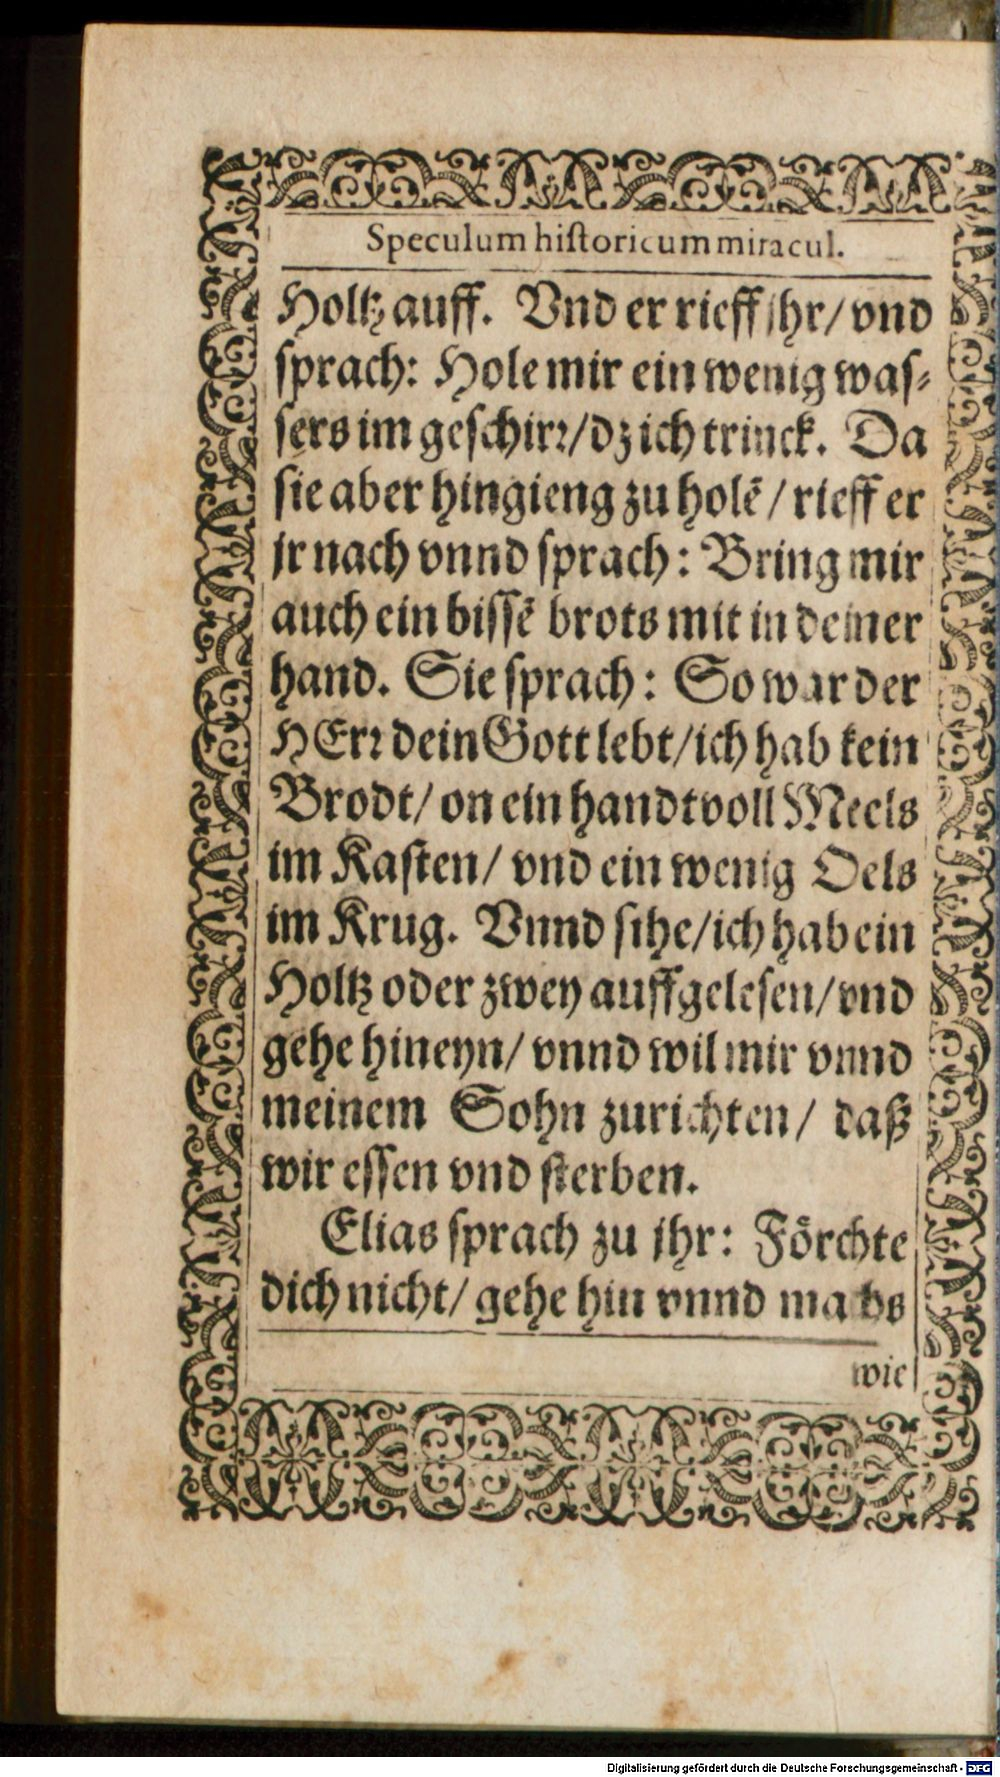 Speculum historicum miracul.
Holtz auff. Vnd er rieff jhr/ vnd
sprach: Hole mir ein wenig was⸗
sers im geschirr/ dz ich trinck. Da
sie aber hingieng zu holẽ / rieff er
jr nach vnnd sprach: Bring mir
auch ein bissẽ brots mit in deiner
hand. Sie sprach: So war der
HErr dein Gott lebt/ ich hab kein
Brodt/ on ein handtvoll Meels
im Kasten/ vnd ein wenig Oels
im Krug. Vnnd sihe/ ich hab ein
Holtz oder zwey auffgelesen/ vnd
gehe hineyn/ vnnd wil mir vnnd
meinem Sohn zurichten/ daß
wir essen vnd sterben.
Elias sprach zu jhr: Förchte
dich nicht/ gehe hin vnnd machs
wie
Digitalisierung gefördert durch die Deutsche Forschungsgemeinschaft - DFG